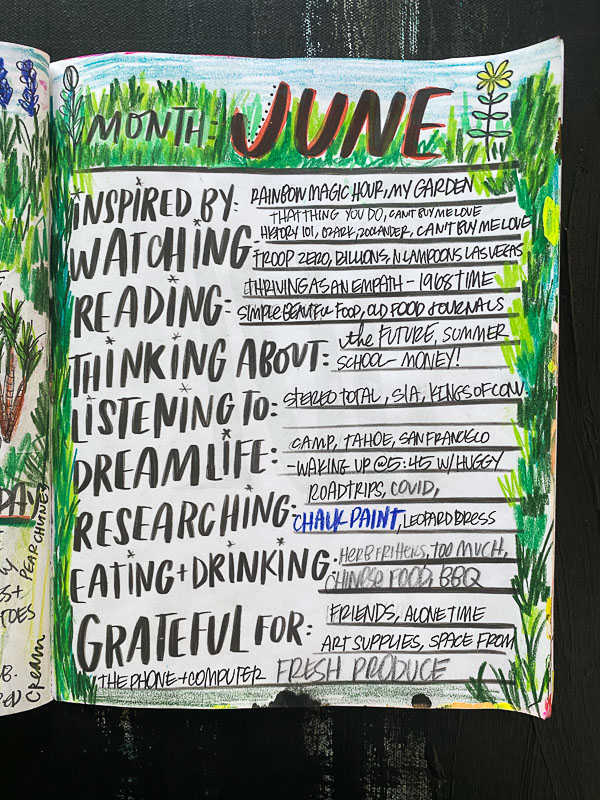 MONTH: JUNE
INSPIRED BY: RAINBOW MAGIC HOUR, MY GARDEN
THAT THING YOU DO, CAN'T BUY ME LOVE
WATCHING: HISTORY 101, OZARK, ZOOLANDER, CAN'T BUY ME LOVE
TROOP ZERO, BILLIONS, N LAMPOONS LAS VEGAS
READING: THRIVING AS AN EMPATH - 1968 TIME
SIMPLE BEAUTIFUL FOOD, OLD FOOD JOURNALS
THINKING ABOUT: the FUTURE, SUMMER
SCHOOL - MONEY!
LISTENING TO: STEREO TOTAL, SIA, KINGS OF CONV.
CAMP, TAHOE, SAN FRANCISCO
DREAM LIFE: - WAKING UP @ 5:45 W/ HUGGY
ROADTRIPS, COVID,
RESEARCHING: CHALK PAINT, LEOPARD DRESS
EATING + DRINKING: HERB FRITTERS, TOO MUCH,
CHINESE FOOD, BBQ
GRATEFUL FOR: FRIENDS, ALONE TIME
ART SUPPLIES, SPACE FROM
THE PHONE + COMPUTER FRESH PRODUCE
TOES
Cream